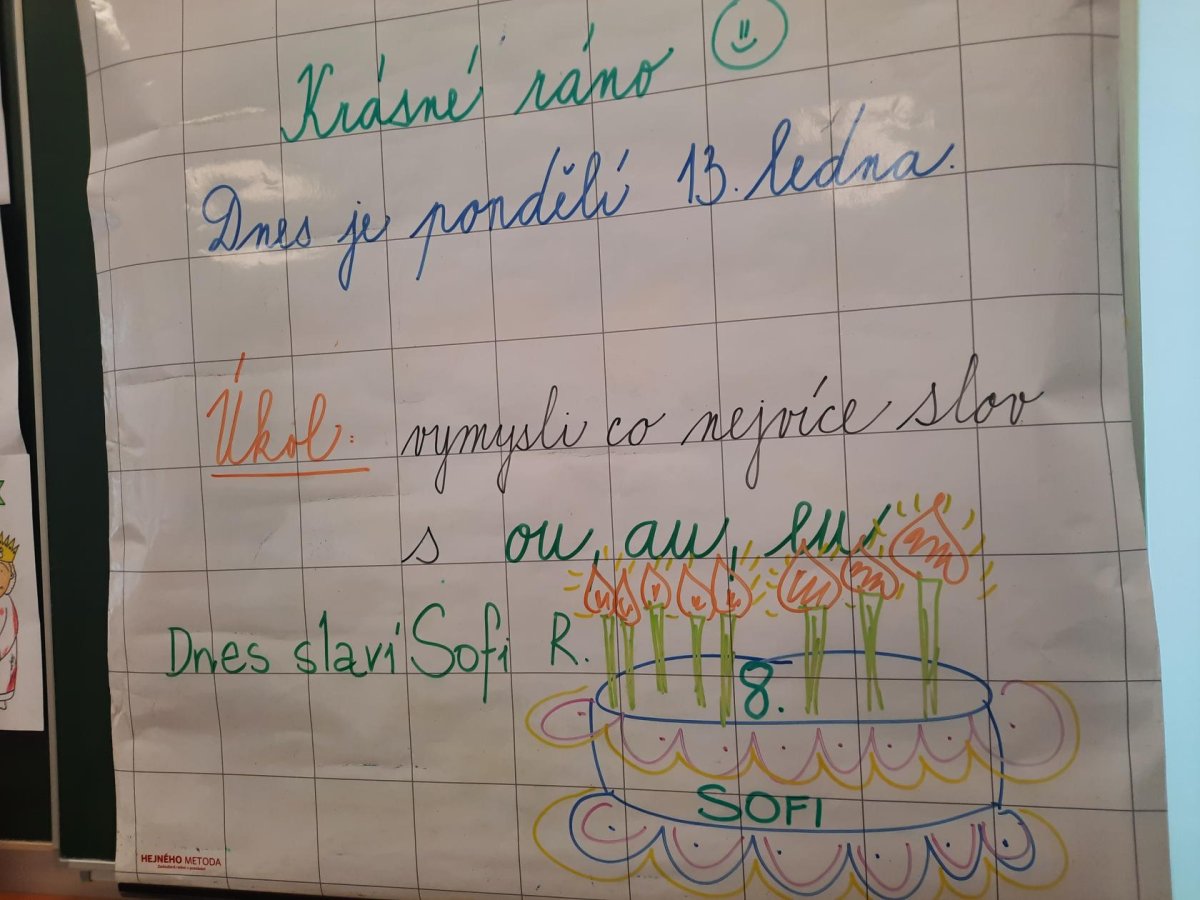 Krásné ráno
Dnes je pondělí 13. ledna.
Úkol: vymysli co nejvíce slov
s ou, au, eu
Dnes slaví Sofi R.
8.
SOFI
HEJNÉHO METODA